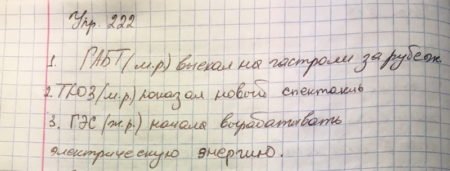 Упр. 222
1. ГАБТ (м.р) выехал на гастроли за рубеж
2. ТЮЗ (м.р) показал новый спектакль
3. ГЭС (ж.р) начала вырабатывать
электрическую энергию.